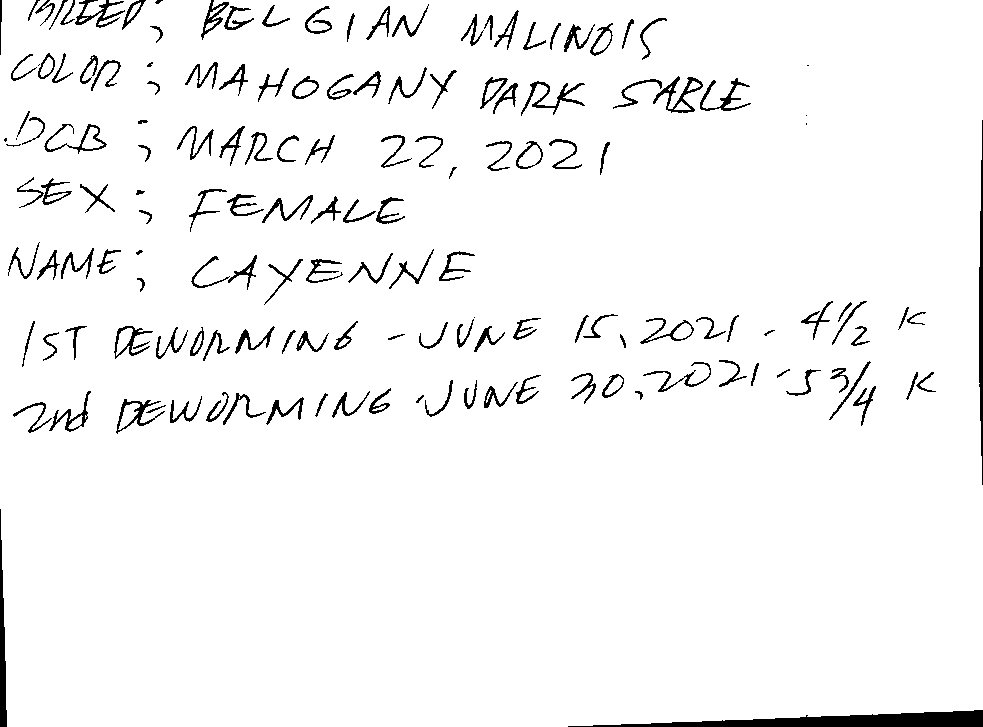 BREED; BELGIAN MALINOIS
COLOR; MAHOGANY DARK SABLE
DOB; MARCH 22, 2021
SEX; FEMALE
NAME; CAYENNE
1ST DEWORMING - JUNE 15, 2021 - 4 1/2 K
2nd DEWORMING - JUNE 30, 2021 - 5 3/4 K